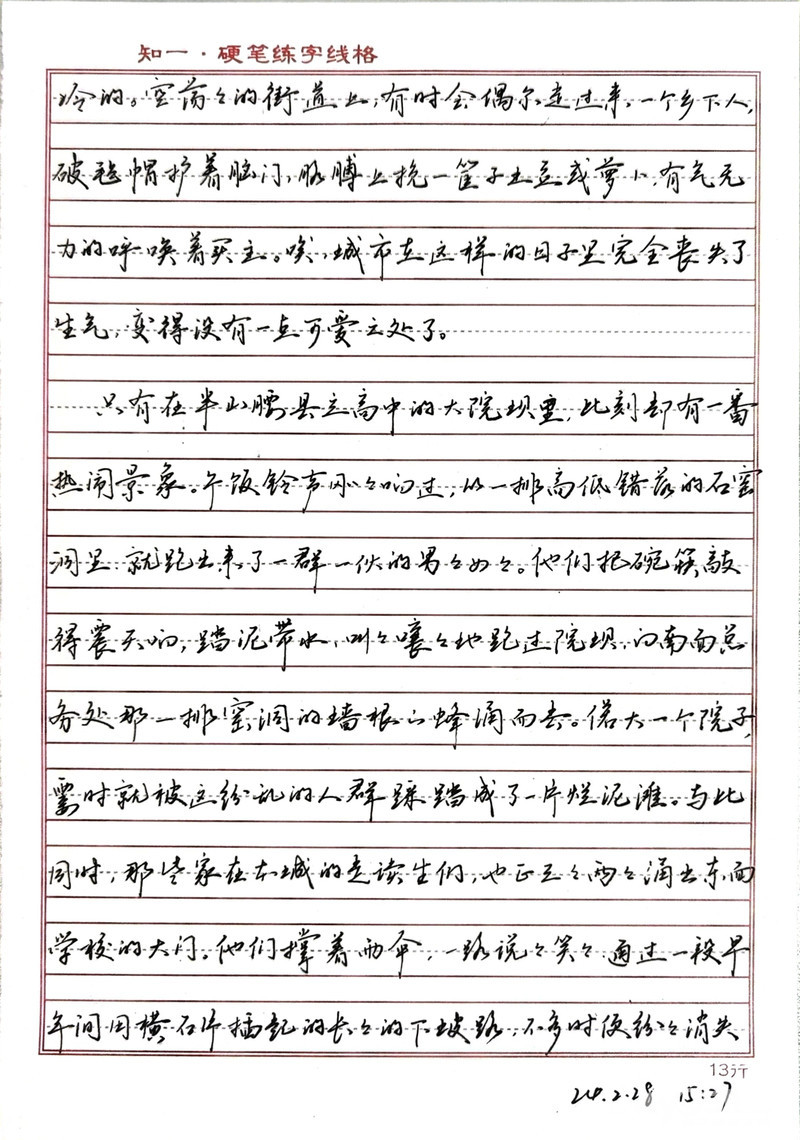 知一·硬笔练字线格
冷的。空荡々的街道上,有时会偶尔走过来一个乡下人,
破毡帽护着脑门,胳膊上挽一筐子土豆或萝卜,有气无
力的呼唤着买主。唉,城市在这样的日子里完全丧失了
生气,变得没有一点可爱之处了。
只有在半山腰县立高中的大院坝里,此刻却有一番
热闹景象。午饭铃声刚々响过,从一排高低错落的石窑
洞里就跑出来了一群一伙的男々女々。他们把碗筷敲
得震天响,踏泥带水,叫々嚷々地跑过院坝,向南面总
务处那一排窑洞的墙根下蜂涌而去。偌大一个院子,
霎时就被这纷乱的人群踩踏成了一片烂泥滩。与此
同时,那些家在本城的走读生们,也正三々两々涌出东面
学校的大门。他们撑着雨伞,一路说々笑々,通过一段早
年间用横石片插起的长々的下坡路,不多时便纷々消失
13行
24.2.28 15:27